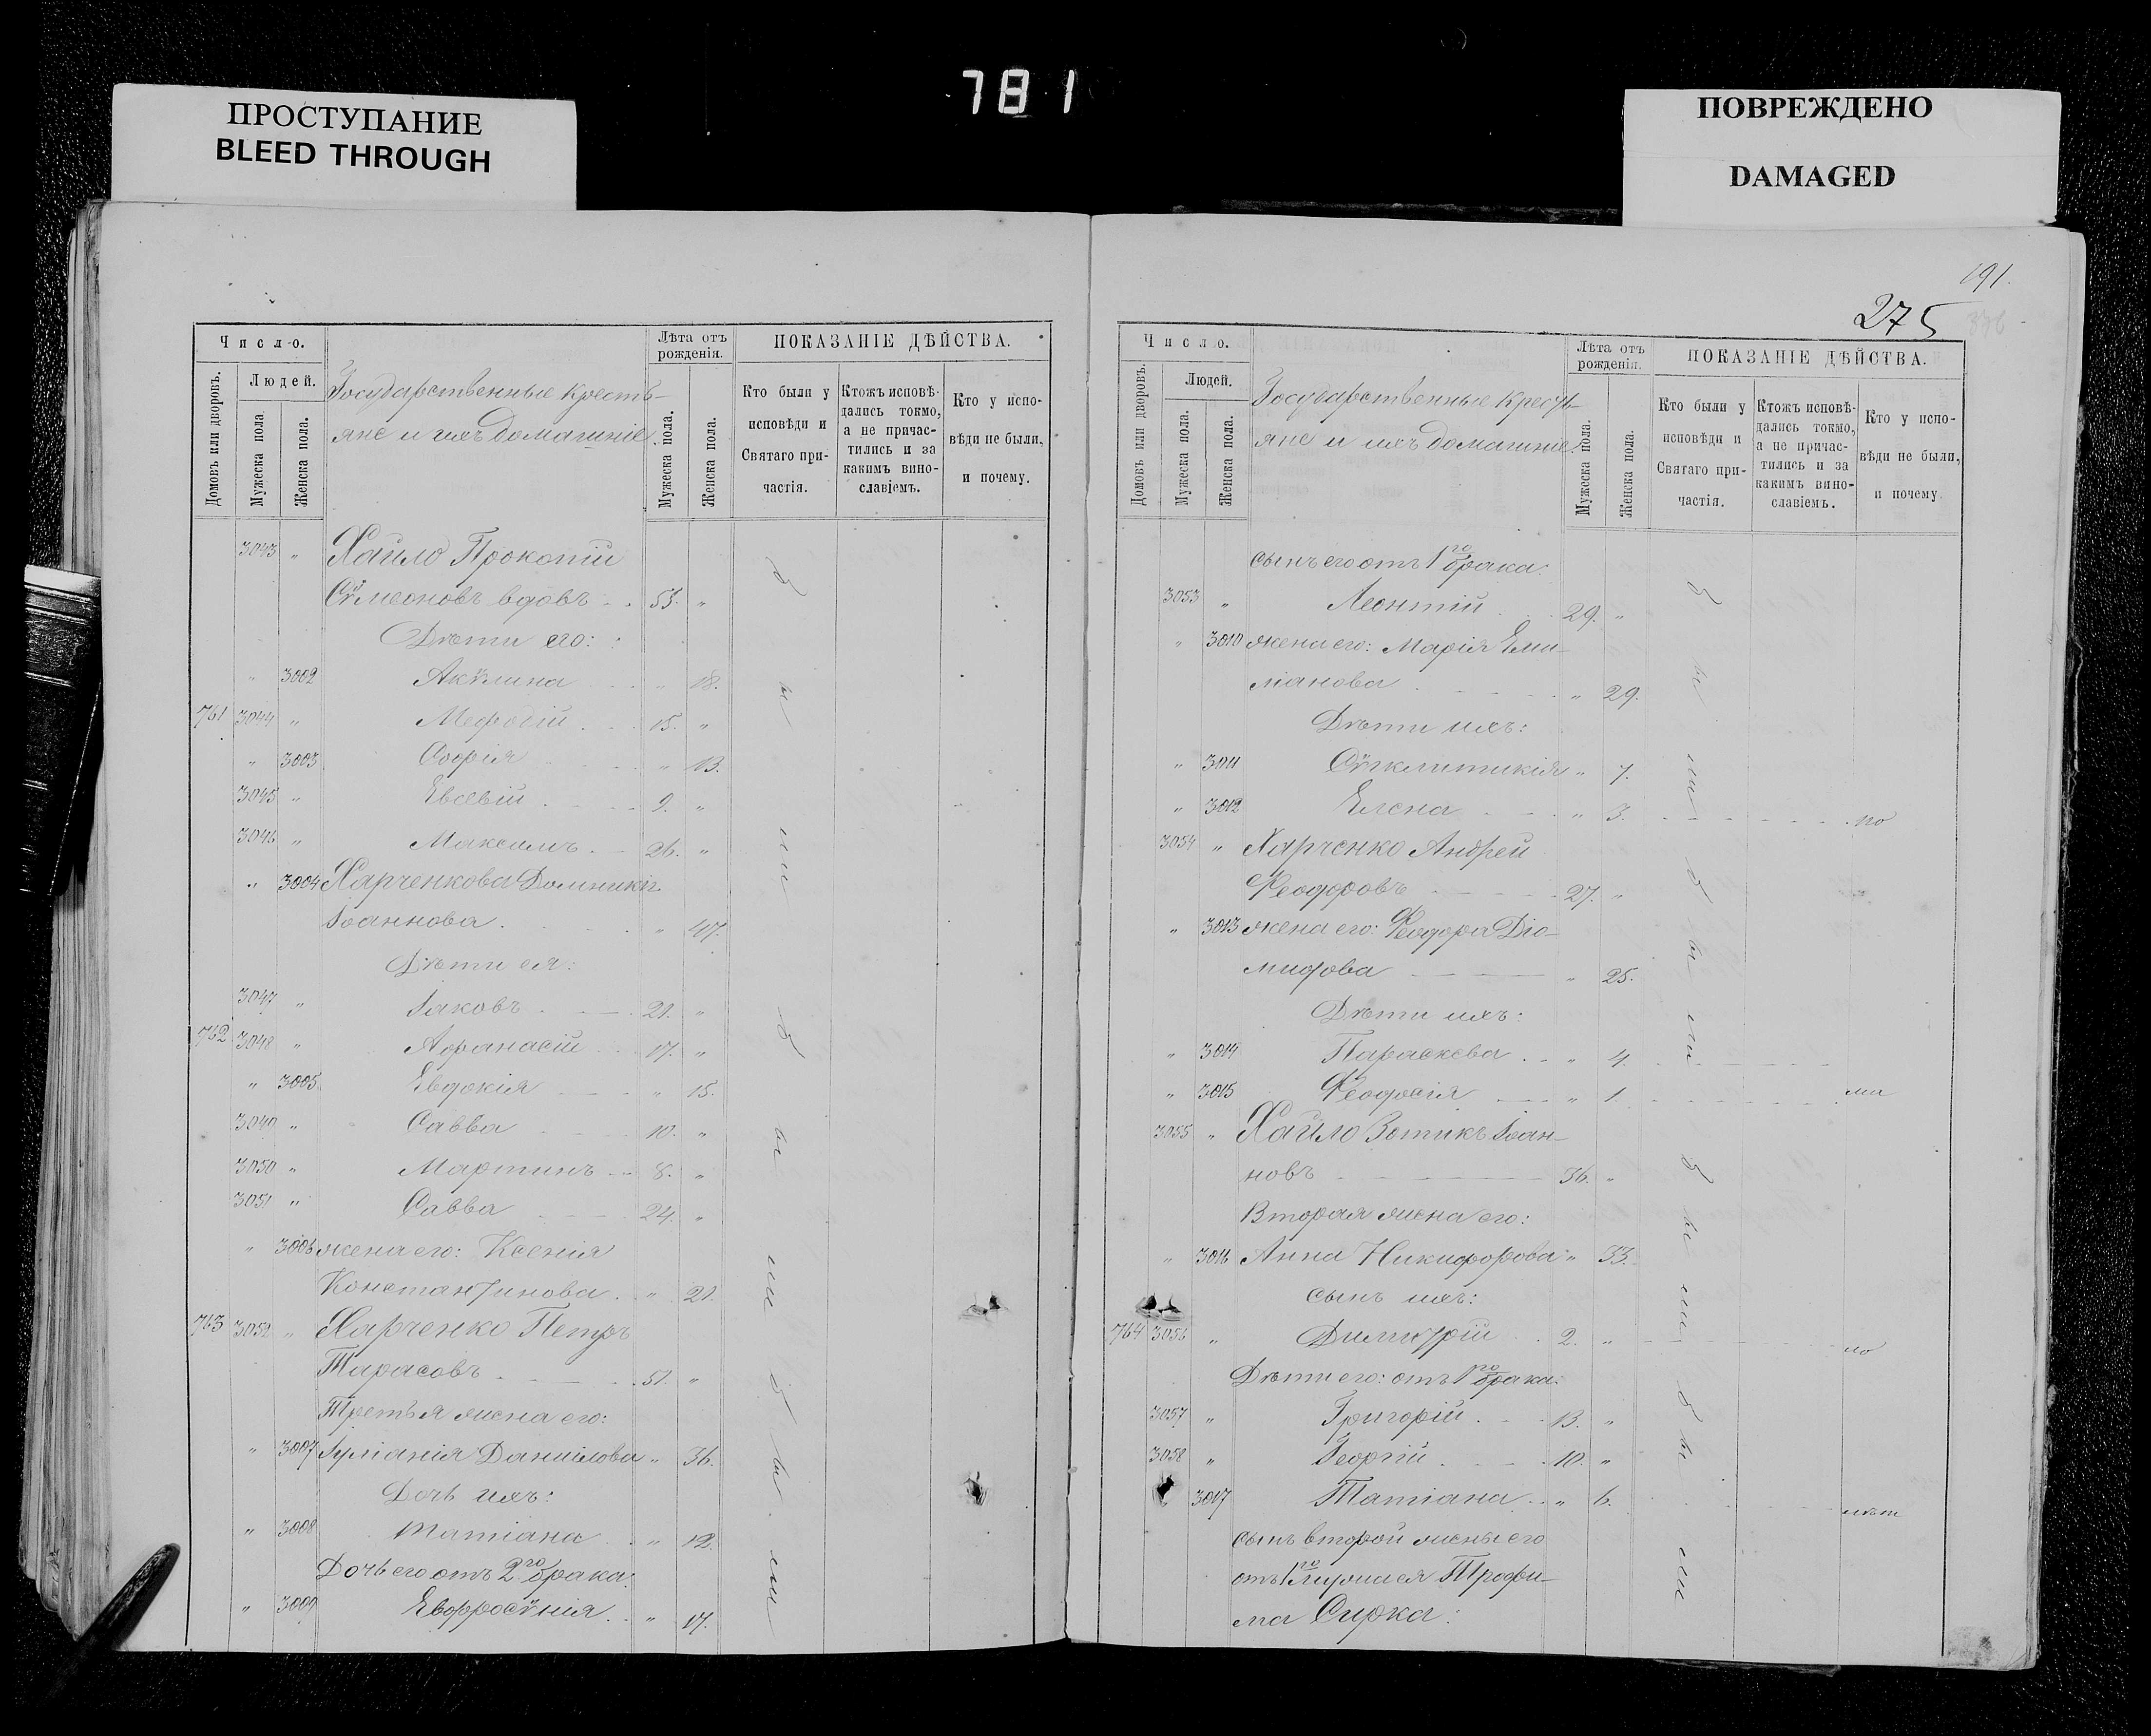 781
ПРОСТУПАНИЕ
BLEED THROUGH
ПОВРЕЖДЕНО
DAMAGED
Число.
Людей.
Домовъ или дворовъ.
Мужеска пола.
Женска пола.
Государственные кресть-
яне и ихъ домашніе
Лѣта отъ рожденія.
Мужеска пола.
Женска пола.
ПОКАЗАНІЕ ДѢЙСТВА.
Кто были у исповѣди и Святаго при-частія.
Ктожъ исповѣ-дались токмо, а не причас-тились и за какимъ вино-славіемъ.
Кто у испо-вѣди не были, и почему.
3043 " Хайло Прокопій
Сѵмеоновъ вдовъ 53. "
Дѣти его:
" 3002 Акѵлина " 18.
761 3044 " Мефодій 15. "
" 3003 Софія " 13.
3045 " Евсевій 9. "
3046 " Максимъ 26. "
" 3004 Харченкова Домникія
Іоаннова " 47.
Дѣти ея:
3047 " Іаковъ 21. "
762 3048 " Афанасій 17. "
" 3005 Евдокія " 15.
3049 " Савва 10. "
3050 " Мартинъ 8. "
3051 " Савва 24. "
" 3006 жена его: Ксенія
Константинова " 21.
763 3052 " Харченко Петръ
Тарасовъ 51. "
Третья жена его:
" 3007 Іуліанія Даніилова " 36.
Дочь ихъ:
" 3008 Татіана " 12.
Дочь его отъ 2го брака:
" 3009 Евфросѵнія " 17.
были
были
были
191.
275
Число.
Людей.
Домовъ или дворовъ.
Мужеска пола.
Женска пола.
Государственные кресть-
яне и ихъ домашніе.
Лѣта отъ рожденія.
Мужеска пола.
Женска пола.
ПОКАЗАНІЕ ДѢЙСТВА.
Кто были у исповѣди и Святаго при-частія.
Ктожъ исповѣ-дались токмо, а не причас-тились и за какимъ вино-славіемъ.
Кто у испо-вѣди не были, и почему.
сынъ его отъ 1го брака:
3053 " Леонтій 29. "
" 3010 жена его: Марія Еми-
ліанова " 29.
Дѣти ихъ:
" 3011 Сѵнклитикія " 7.
" 3012 Елена " 3. по
3054 " Харченко Андрей
Феодоровъ 27. "
" 3013 жена его: Феодора Діо-
мидова " 25.
Дѣти ихъ:
" 3014 Параскева " 4.
" 3015 Феодосія " 1. ма
3055 " Хайло Зотикъ Іоан-
новъ 36. "
Вторая жена его:
" 3016 Анна Никифорова " 33.
сынъ ихъ:
764 3056 " Димитрій 2. " ло
Дѣти его: отъ 1го брака:
3057 " Григорій 13. "
3058 " Георгій 10. "
3017 Татіана " 6. лѣт
сынъ второй жены его
отъ 1го мужа ея Трофи-
ма Сирка:
были
были
были
были